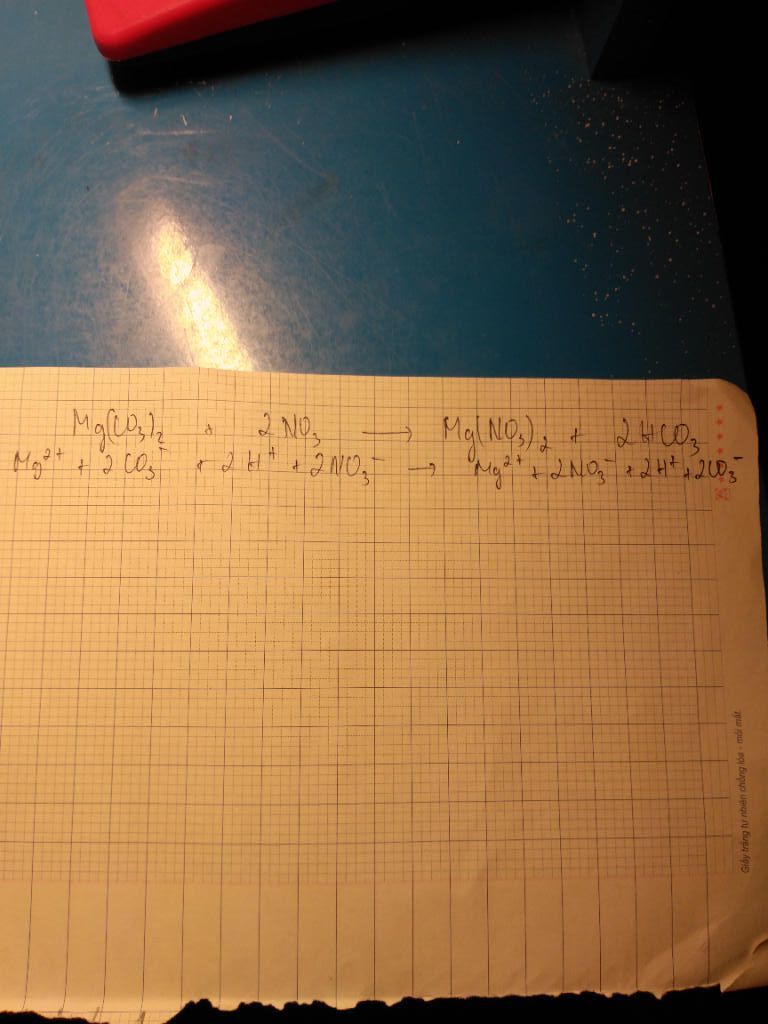 Mg(CO₃)₂ + 2NO₃ → Mg(NO₃)₂ + 2HCO₃
Mg²⁺ + 2CO₃⁻ + 2H⁺ + 2NO₃⁻ → Mg²⁺ + 2NO₃⁻ + 2H⁺ + 2CO₃⁻
Giấy trắng tự nhiên chống lóa - mỏi mắt.